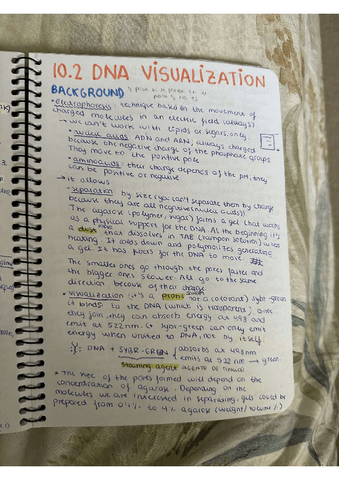 10.2 DNA VISUALIZATION
BACKGROUND
• Electrophoresis: technique based on the movement of
charged molecules in an electric field (always)
→ we can't work with lipids or sugars, only
• nucleic acids ADN and ARN; always charged
because the negative charge of the phosphate groups
They move to the positive pole
• aminoacids: their charge depends of the pH; they
can be positive or negative
→ it allows
• separation by size (you can't separate them by charge
because they are all negatives (nucleic acids))
The agarose (polymer, sugar) forms a gel that works
as a physical support for the DNA. At the beginning it's
a that dissolves in TAE (tampon solution) using
heating. It cools down and polymerizes generating
a gel. It has pores for the DNA to move.
The smaller ones go through the pores faster and
the bigger ones slower. All go to the same
direction because of their charge.
• visualization (it's a not a colorant) sybr-green
it binds to the DNA (which is transparent) once
they join, they can absorb energy at 498 and
emit at 522nm. Sybr-green can only emit
energy when united to DNA, not by itself.
DNA + SYBR-GREEN absorbs at 498nm
emits at 522nm → green
Staining agent AGENTE DE
• The size of the pores formed will depend on the
concentration of agarose. Depending on the
molecules we are interested in separating, gels could be
prepared from to 4% agarose (weight/volume %)